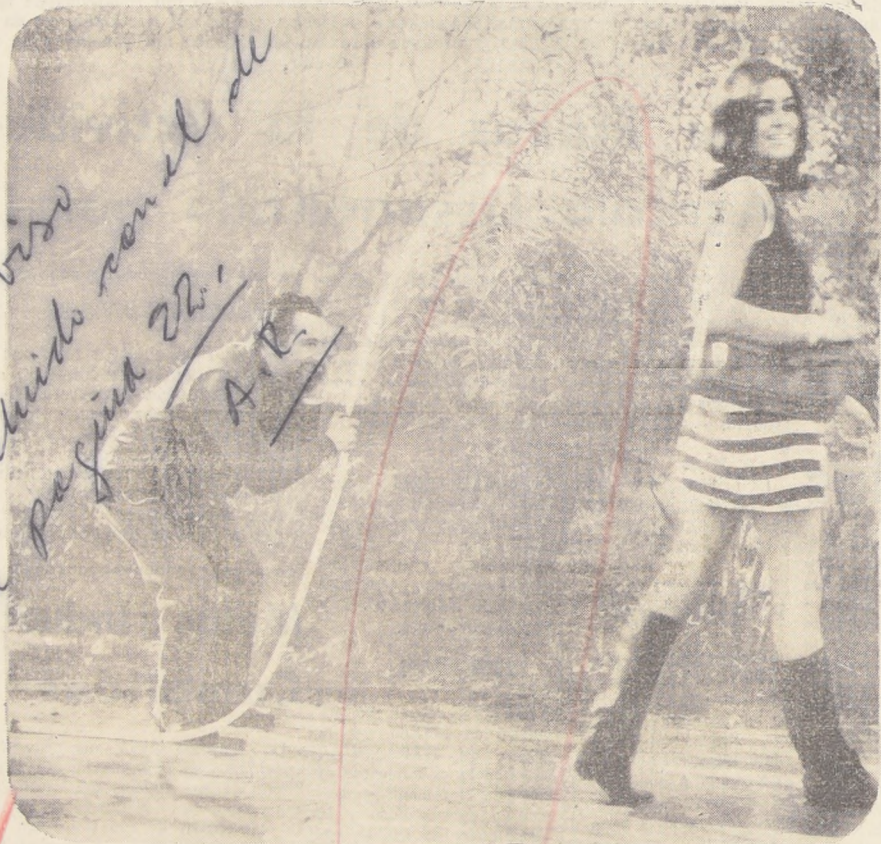 viso
con el de
pagina 22.
A.R.